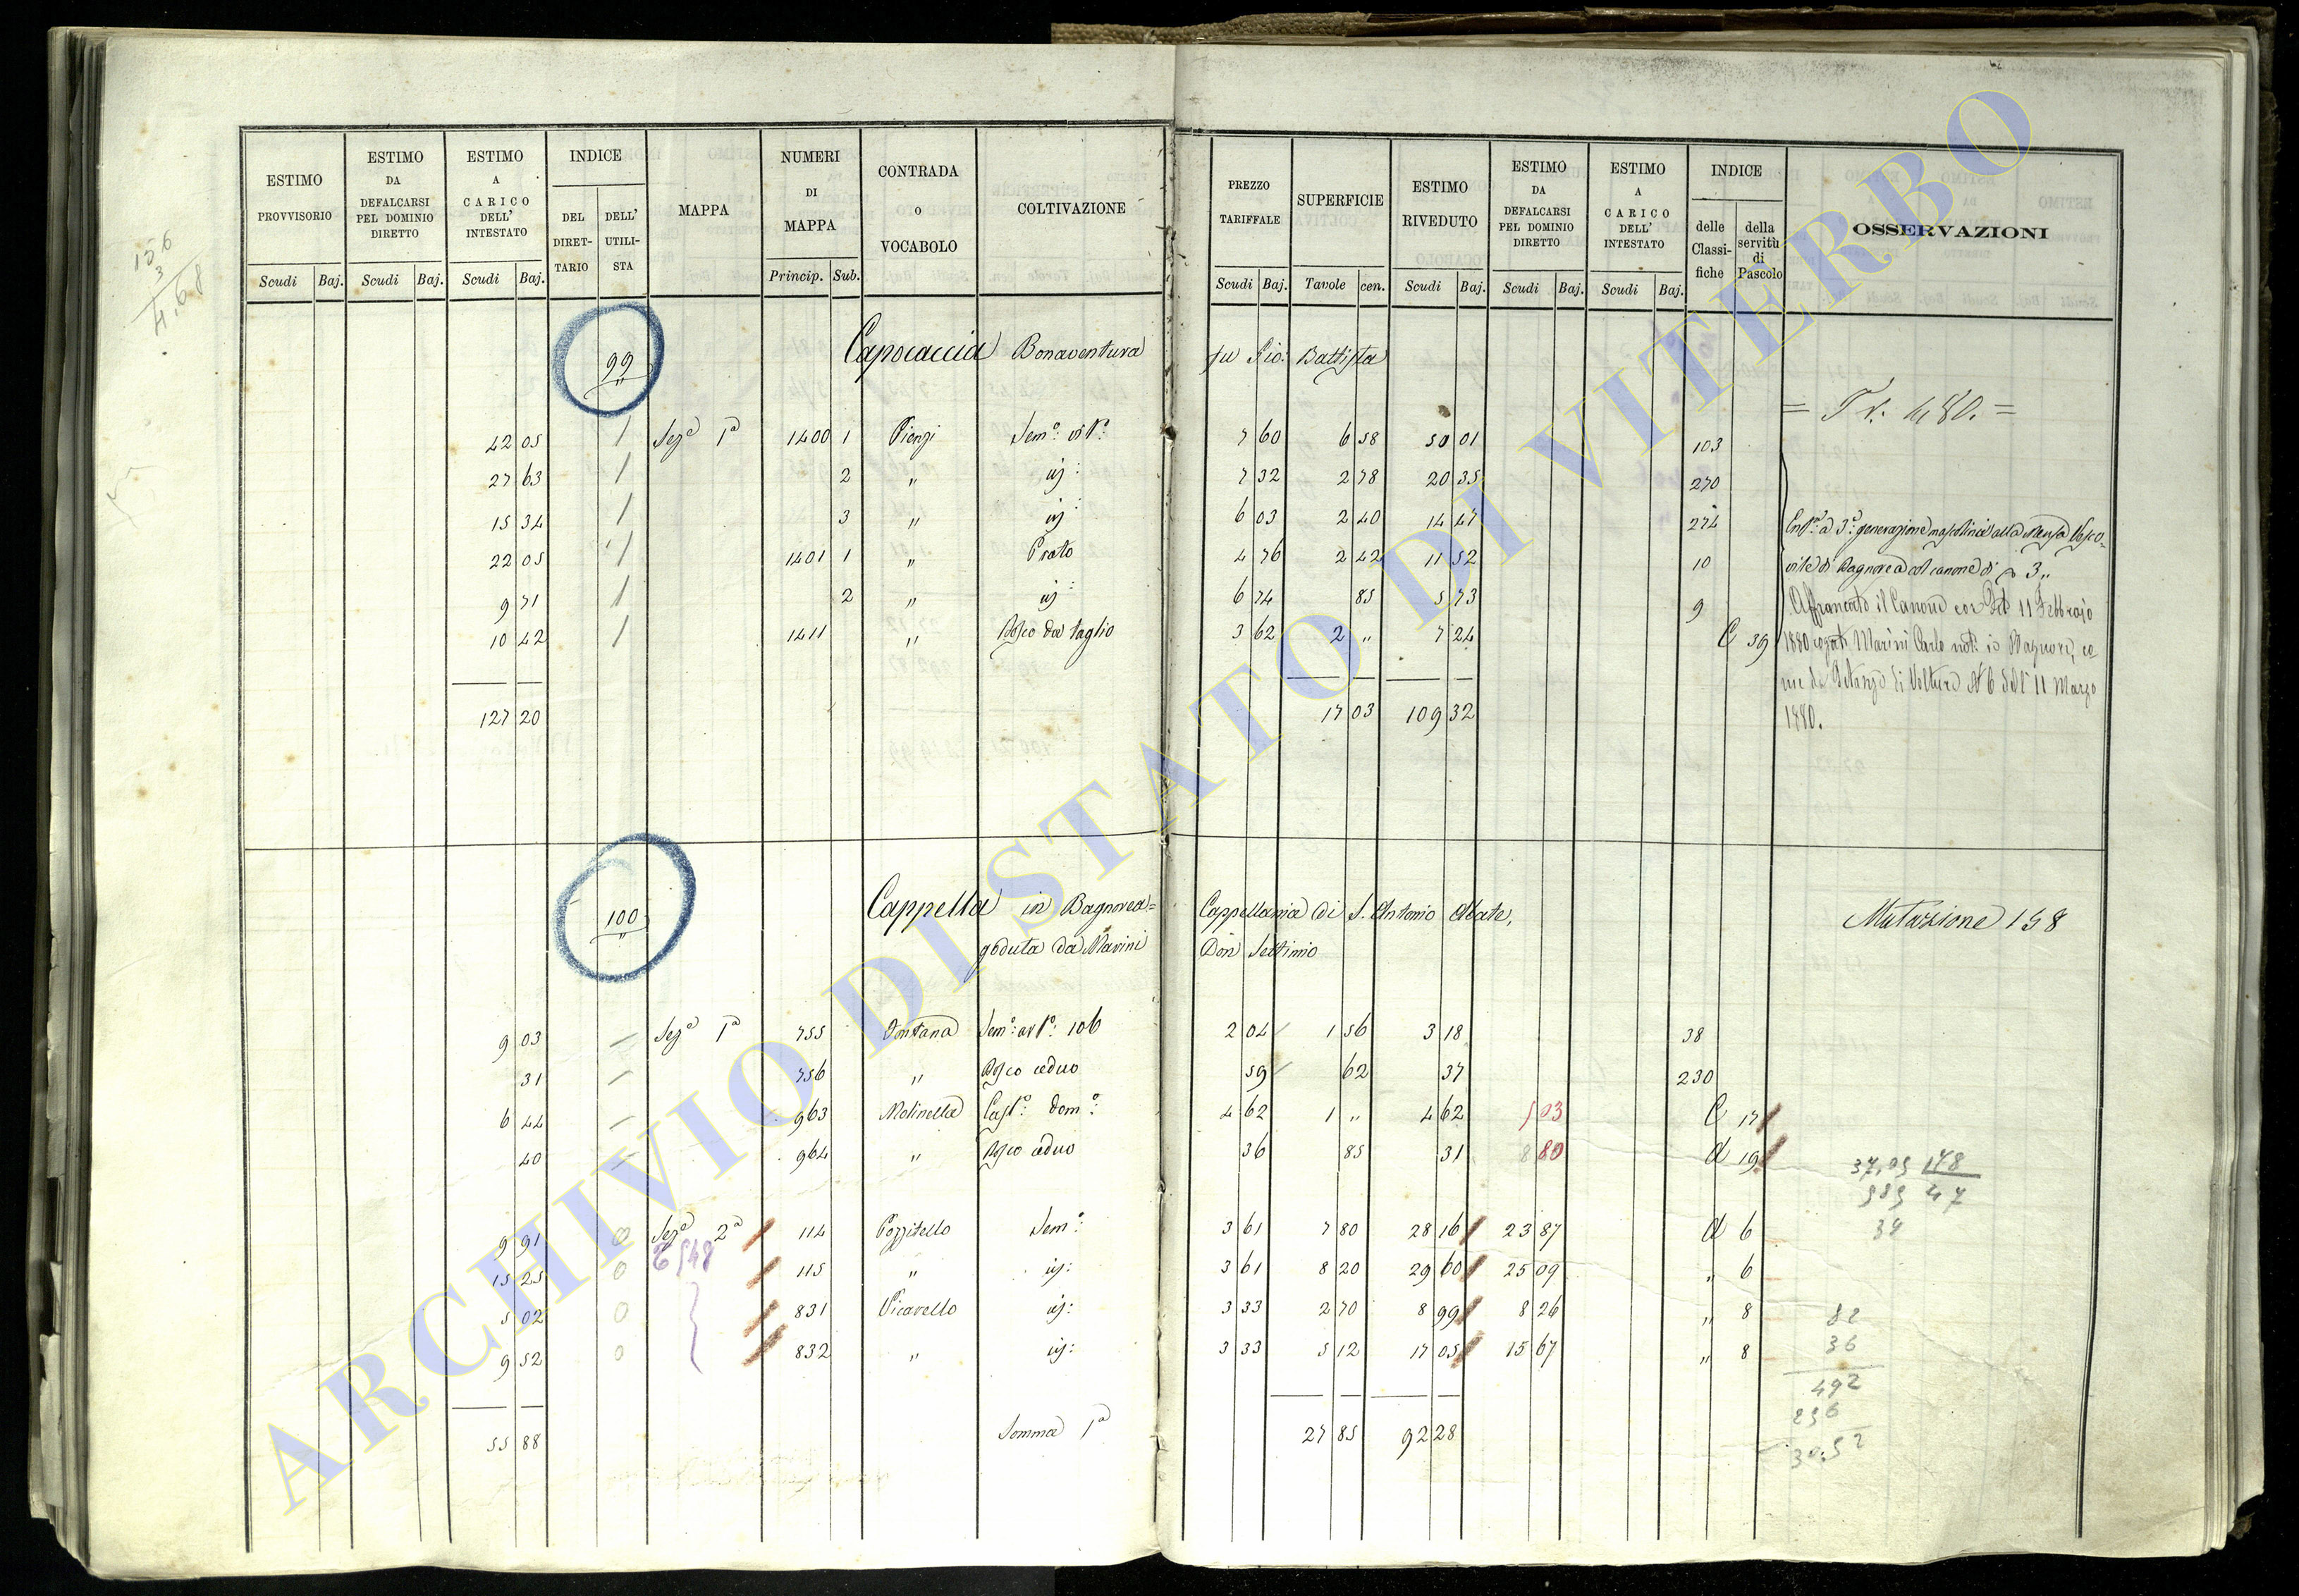 ESTIMO PROVVISORIO
ESTIMO DA DEFALCARSI PEL DOMINIO DIRETTO
ESTIMO A CARICO DELL' INTESTATO
INDICE
DEL DIRETTARIO
DELL' UTILISTA
MAPPA
NUMERI DI MAPPA
CONTRADA O VOCABOLO
COLTIVAZIONE
PREZZO TARIFFALE
SUPERFICIE
ESTIMO RIVEDUTO
ESTIMO DA DEFALCARSI PEL DOMINIO DIRETTO
ESTIMO A CARICO DELL' INTESTATO
INDICE
delle Classifiche
della servitù di Pascolo
OSSERVAZIONI
Scudi Baj. Scudi Baj. Scudi Baj. Princip. Sub. Scudi Baj. Tavole cen. Scudi Baj. Scudi Baj. Scudi Baj.
156
3
4.68
99 Capocaccia Bonaventura fu Gio: Battista
42 05 1 Sezᵉ 1ª 1400 1 Pienzi Semº: vitº: 7 60 6 58 50 01 103
27 63 1 2 " id: 7 32 2 78 20 35 270
15 34 1 3 " id: 6 03 2 40 14 47 274
22 05 1 1401 1 " Prato 4 76 2 42 11 52 10
9 71 1 2 " id: 6 74 85 5 73 9
10 42 1 1411 " Bosco da taglio 3 62 2 " 7 24 C 39
127 20 17 03 109 32
Enfª: a 3ª: generazione mascolina alla Mensa Vesco-
vile di Bagnorea col canone di 3 "
Affrancato il Canone 11 Febbrajo
1880 Marini Carlo not: in Bagnorea, co-
me da di Voltura Nº 6 dell' 11 Marzo
1880.
100 Cappella in Bagnorea= Cappellania di S. Antonio Abate, Mutazione 158
goduta da Marini Don Settimio
9 03 Sezᵉ 1ª 755 Fontana Semº: arbº: 106 2 04 1 56 3 18 38
31 756 " Bosco ceduo 59 62 37 230
6 44 963 Molinella Castº: domº: 4 62 1 " 4 62 5 03 C 17
40 964 " Bosco ceduo 36 85 31 8 80 d 19
37,05 148
47
34
9 91 0 Sezᵉ 2ª 114 Pozzitello Semº: 3 61 7 80 28 16 23 87 d 6
15 25 0 115 " id: 3 61 8 20 29 60 25 09 " 6
5 02 0 831 Vicarello id: 3 33 2 70 8 99 8 26 " 8
9 52 0 832 " id: 3 33 5 12 17 05 15 67 " 8
82
36
492
30.52
55 88 Somma 1ª 27 85 92 28
ARCHIVIO DI STATO DI VITERBO